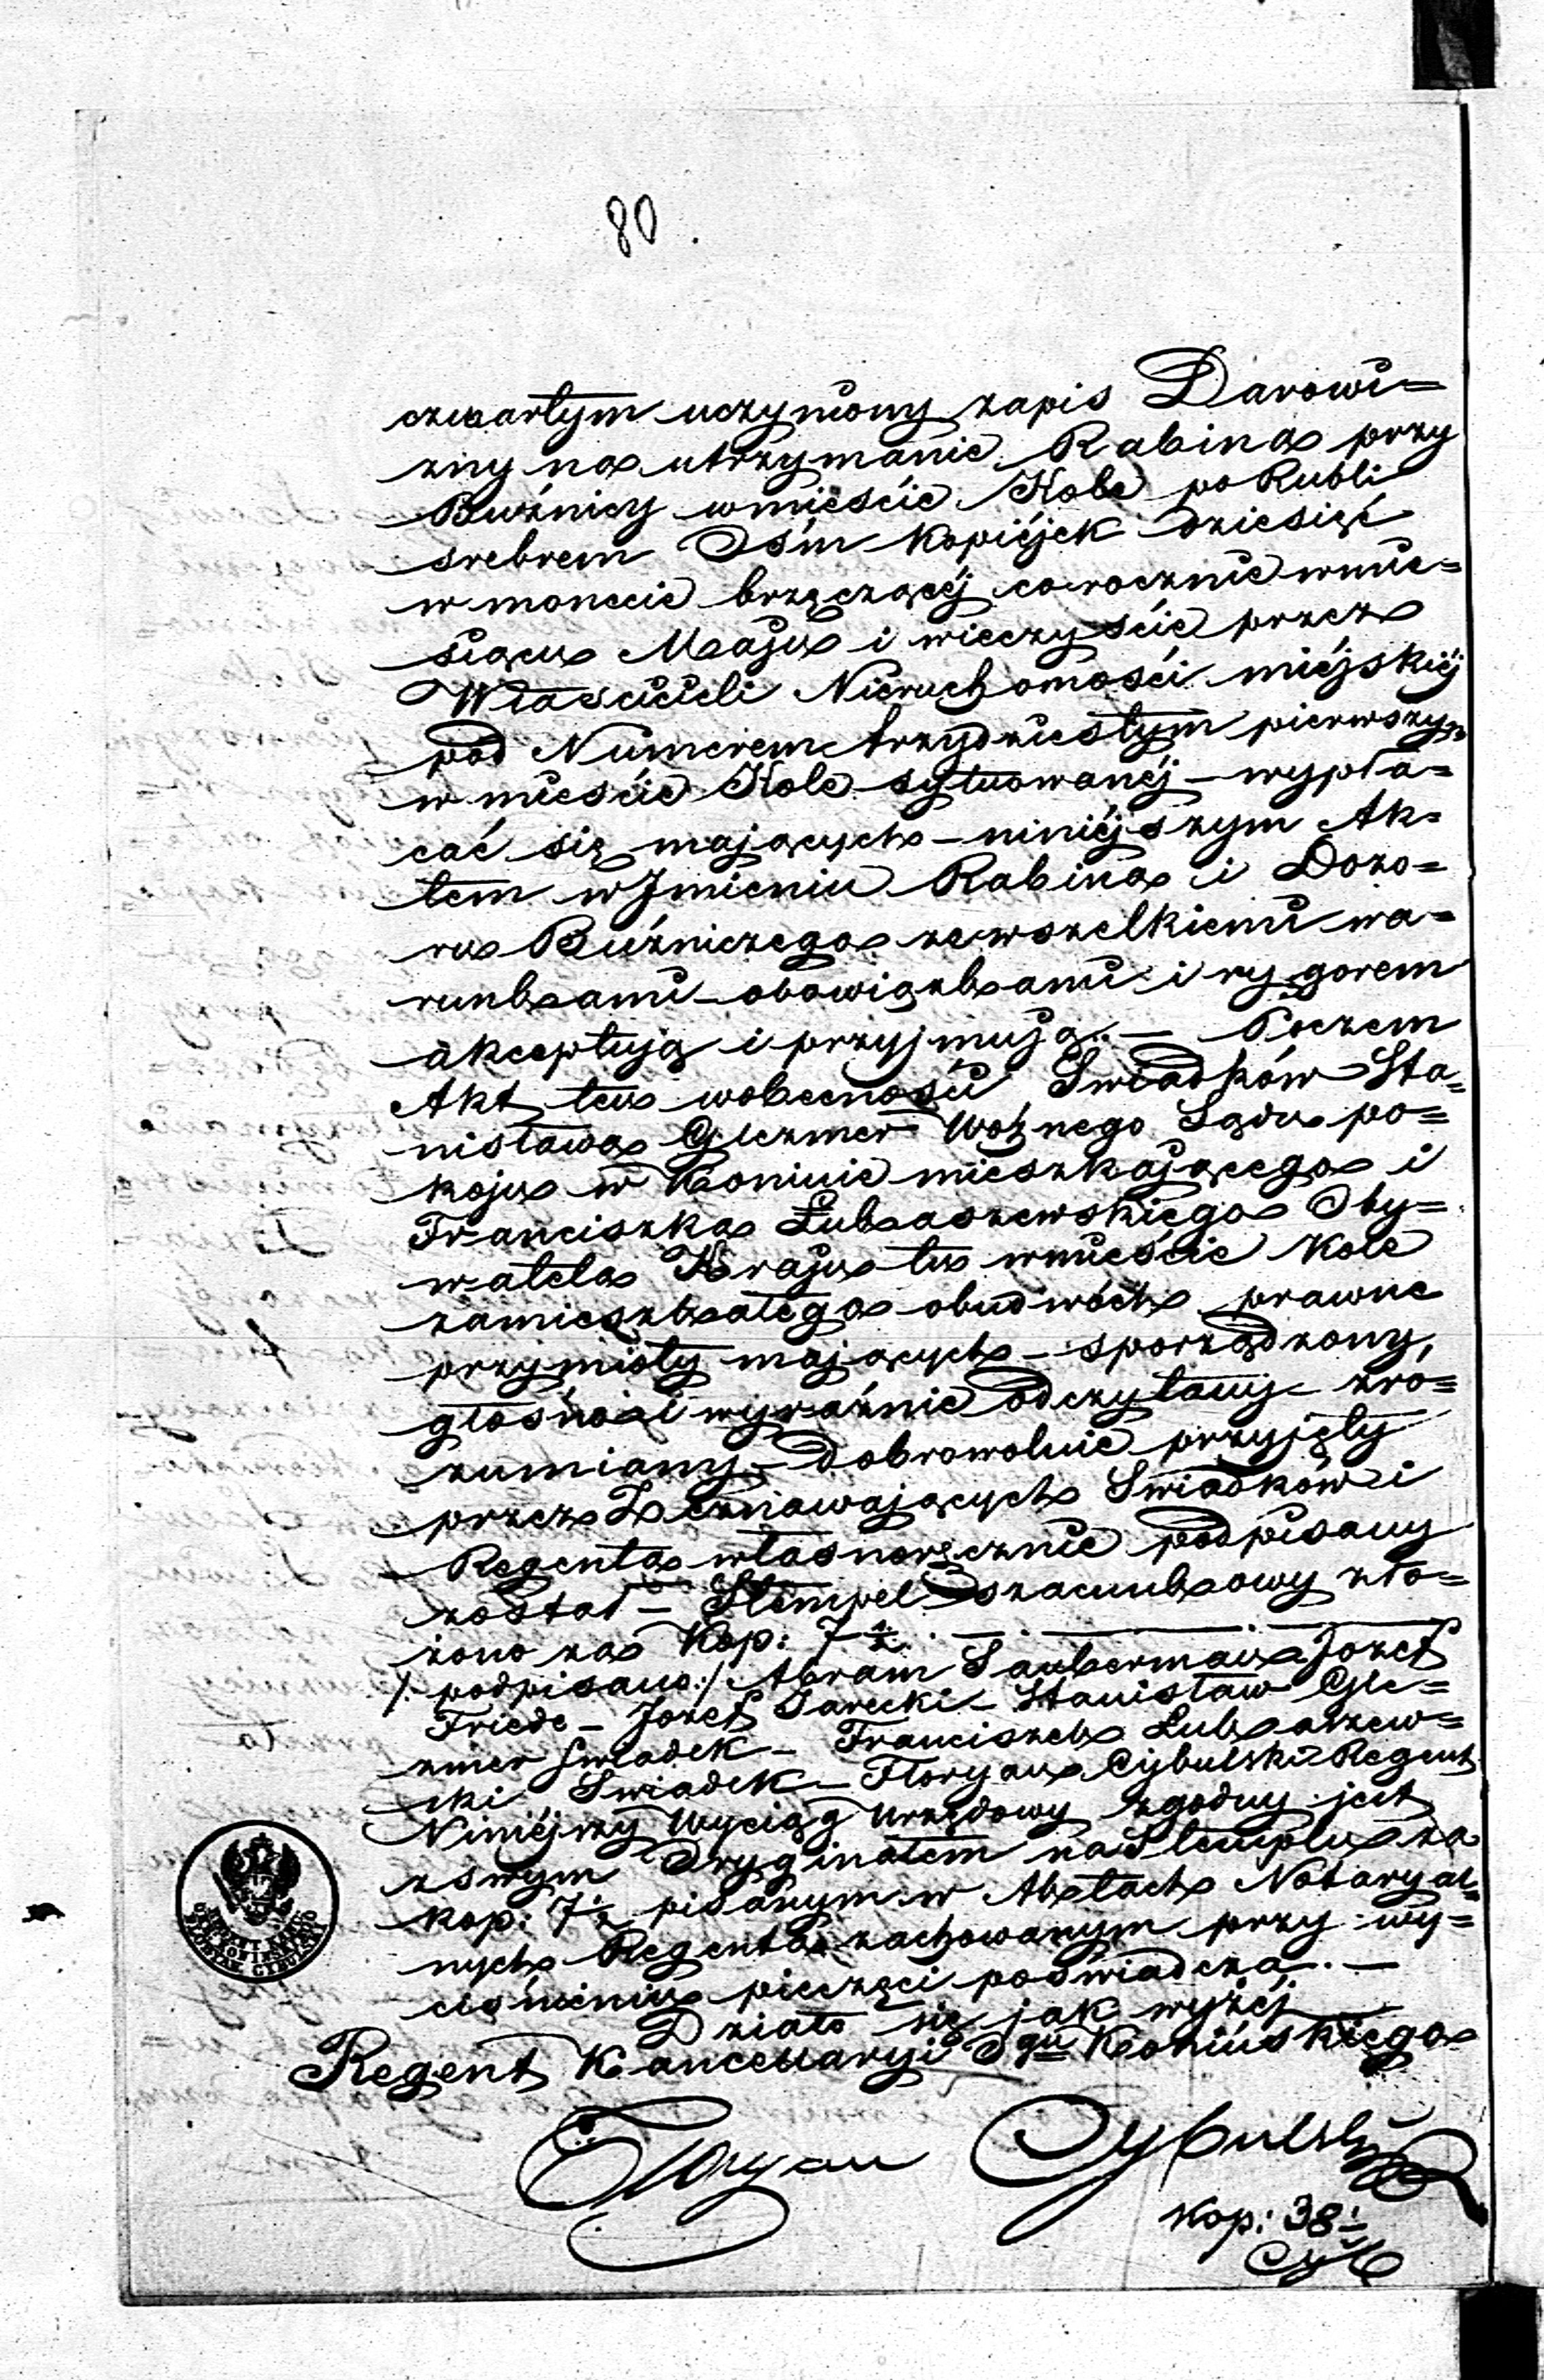 80.
czwartym uczyniony zapis Darowi=
zny na utrzymanie Rabina przy
Bużnicy w mieście Kole po Rubli
srebrem Ośm kopiejek dziesięć
w monecie brzęczącéj corocznie w mie=
siącu Maju i wieczyście przez
Właścicieli Nieruchomości miéjskiéj
pod Numerem trzydziestym pierwszym
w mieście Kole sytuowanéj – wypła=
cać się mających – niniéjszym Ak=
tem w Jmieniu Rabina i Dozo=
ru Bużniczego ze wszelkiemi wa=
runkami – obowiązkami i rygorem
akceptują i przyjmują. — Poczem
Akt ten w obecności Swiadków Sta=
nisława Glezmer Woźnego Sądu po=
koju w Koninie mieszkającego i
Franciszka Lukaszewskiego Oby=
watela Kraju tu w mieście Kole
zamieszkałego obudwóch prawne
przymioty mających – sporządzony,
głośno i wyraźnie odczytany – zro=
zumiany – dobrowolnie przyjęty
przez Zeznawających Swiadków i
Regenta własnoręcznie podpisany
został – Stempel szacunkowy zło=
żono za Kop: 7½. —
/: podpisano :/ Abram Sauberman Jozef
Friede – Jozef Jarecki – Stanisław Gle=
zmer Swiadek – Franciszek Lukaszew=
ski Swiadek – Floryan Cybulski Regent
Niniéjszy Wyciąg Urzędowy zgodny jest
z swym Oryginałem na Stemplu za
kop: 7½ pisanym w Aktach Notaryal=
nych Regenta zachowanym przy wy=
ciśnieniu pieczęci poświadcza. —
Działo się jak wyżéj
Regent Kancellaryi Ogu Konińskiego
Floryan Cybulski
Kop: 38½